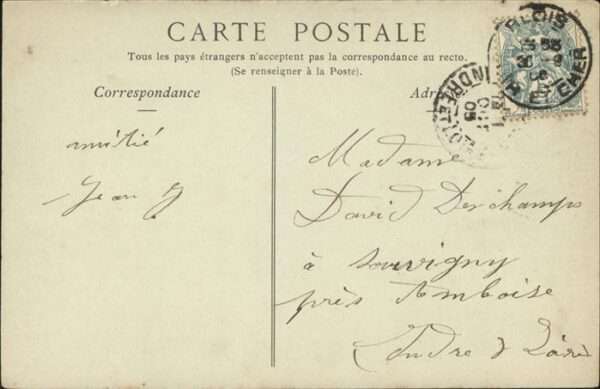 CARTE POSTALE
Tous les pays étrangers n'acceptent pas la correspondance au recto.
(Se renseigner à la Poste).
Correspondance
Adr
BLOIS
ET CHER
INDRE ET
05
amitié
Jean
Madame
David Deschamps
à Souvigny
près Amboise
Indre & Loire